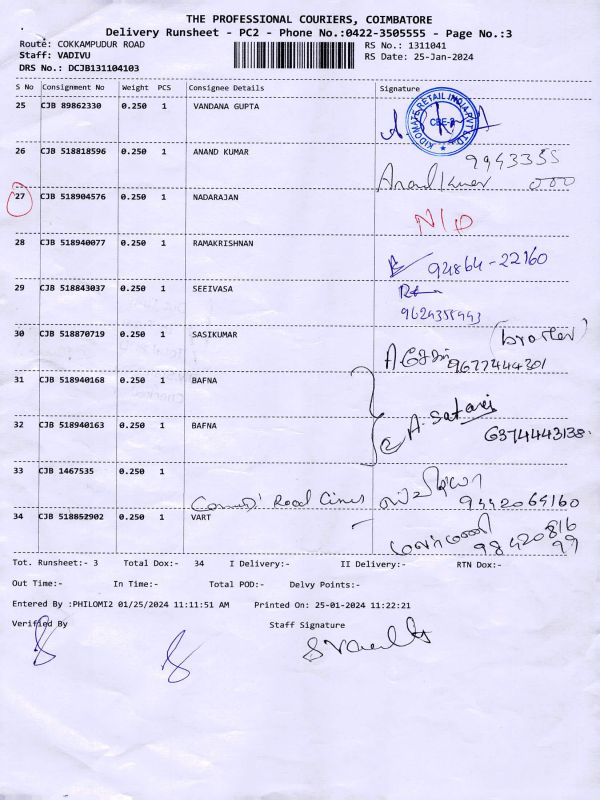 THE PROFESSIONAL COURIERS, COIMBATORE
Delivery Runsheet - PC2 - Phone No.:0422-3505555 - Page No.:3
Route: COKKAMPUDUR ROAD RS No.: 1311041
Staff: VADIVU RS Date: 25-Jan-2024
DRS No.: DCJB131104103
S No Consignment No Weight PCS Consignee Details Signature
25 CJB 89862330 0.250 1 VANDANA GUPTA
KIDOMATE RETAIL INDIA PVT LTD. CBE-2
26 CJB 518818596 0.250 1 ANAND KUMAR 9943355
Anand Kumar 000
27 CJB 518904576 0.250 1 NADARAJAN N/D
28 CJB 518940077 0.250 1 RAMAKRISHNAN 94864-22160
29 CJB 518843037 0.250 1 SEEIVASA
30 CJB 518870719 0.250 1 SASIKUMAR (brother)
9677444301
31 CJB 518940168 0.250 1 BAFNA
32 CJB 518940163 0.250 1 BAFNA 6374443138.
33 CJB 1467535 0.250 1
Road 9442064160
34 CJB 518852902 0.250 1 VART
98420816
99
Tot. Runsheet:- 3 Total Dox:- 34 I Delivery:- II Delivery:- RTN Dox:-
Out Time:- In Time:- Total POD:- Delvy Points:-
Entered By :PHILOMI2 01/25/2024 11:11:51 AM Printed On: 25-01-2024 11:22:21
Verified By Staff Signature